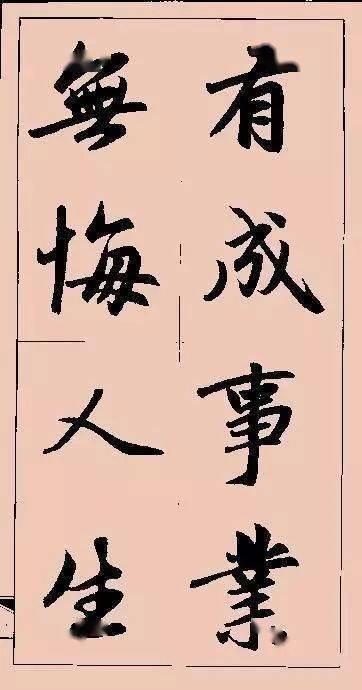 有成事業
無悔人生